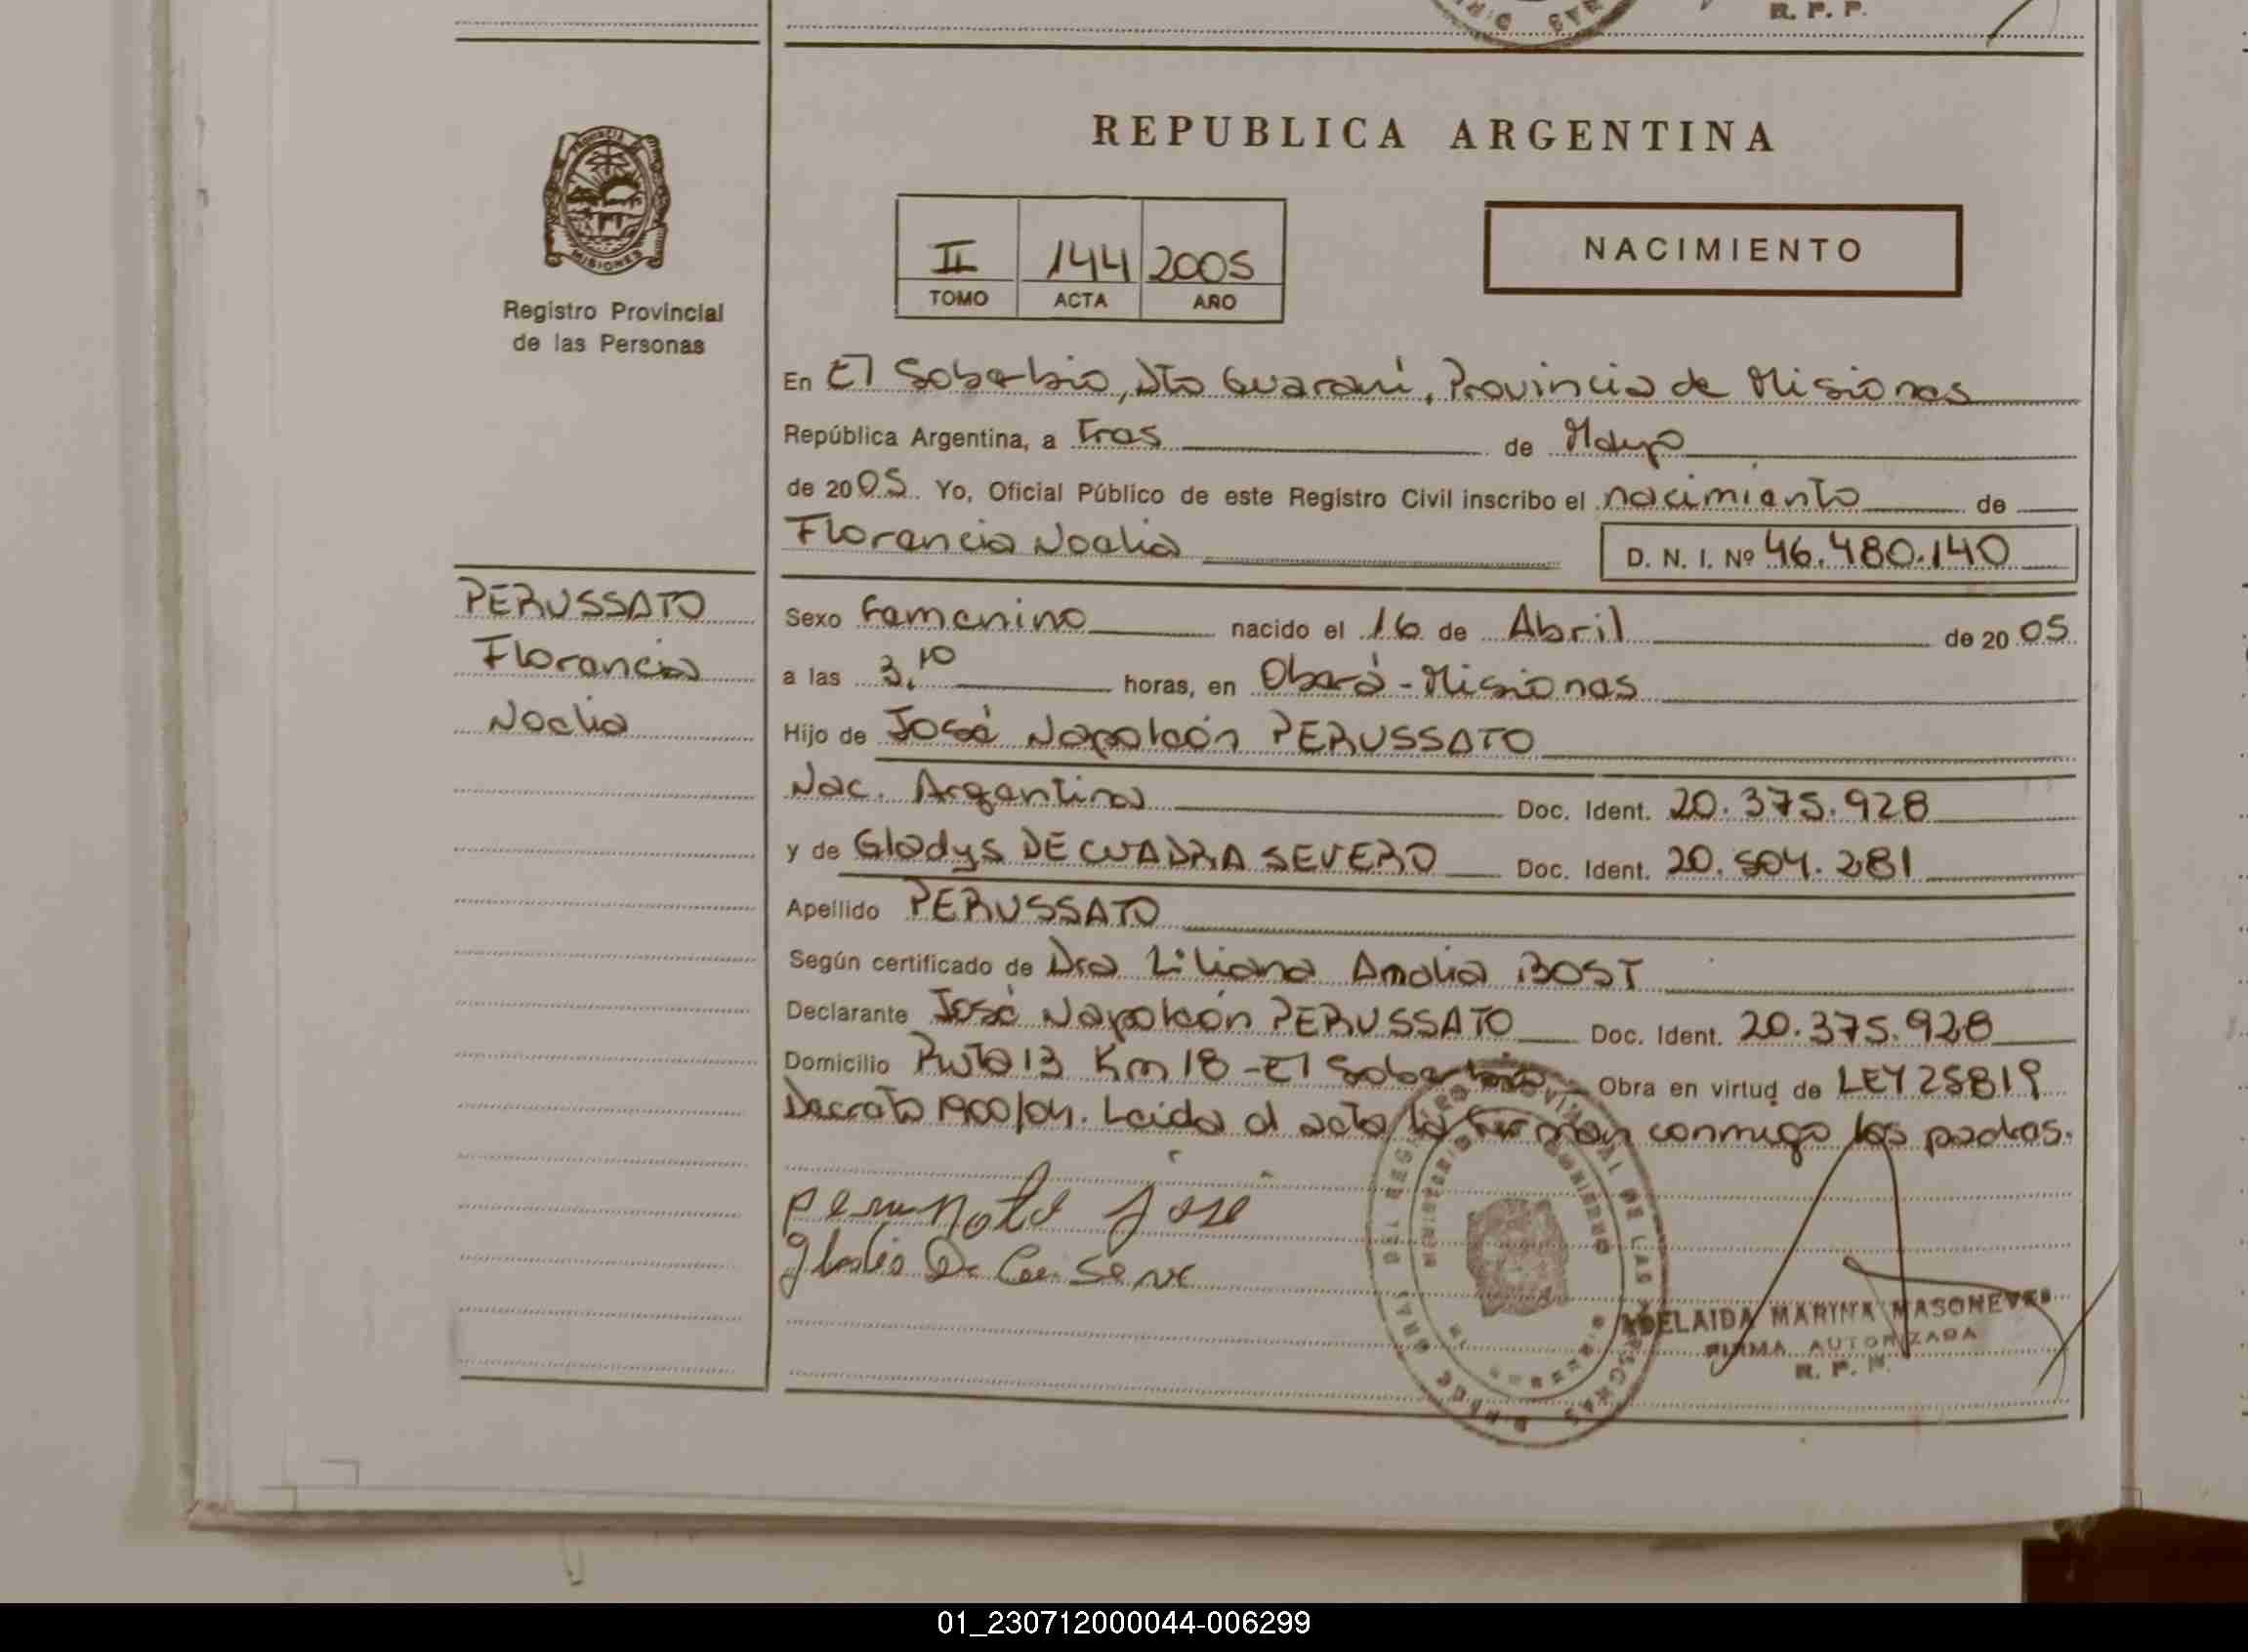 R. P. P.
REPUBLICA ARGENTINA
PROVINCIA DE
MISIONES
Registro Provincial
de las Personas
II 144 2005
TOMO ACTA AÑO
NACIMIENTO
En El Soberbio, Dto Guaraní, Provincia de Misiones
República Argentina, a Tres de Mayo
de 2005. Yo, Oficial Público de este Registro Civil inscribo el nacimiento de
Florencia Noelia D. N. I. Nº 46.480.140
PERUSSATO
Florencia
Noelia
Sexo Femenino nacido el 16 de Abril de 2005
a las 3,10 horas, en Oberá - Misiones
Hijo de José Napoleón PERUSSATO
Nac. Argentina Doc. Ident. 20.375.928
y de Gladys DE CUADRA SEVERO Doc. Ident. 20.504.281
Apellido PERUSSATO
Según certificado de Dra Liliana Amalia BOST
Declarante José Napoleón PERUSSATO Doc. Ident. 20.375.928
Domicilio Ruta 13 Km 18 - El Soberbio Obra en virtud de LEY 25819
Decreto 1900/04. Leida el acta la firman conmigo los padres.
José
ADELAIDA MARINA
FIRMA AUTORIZADA
R. P. P.
01_230712000044-006299